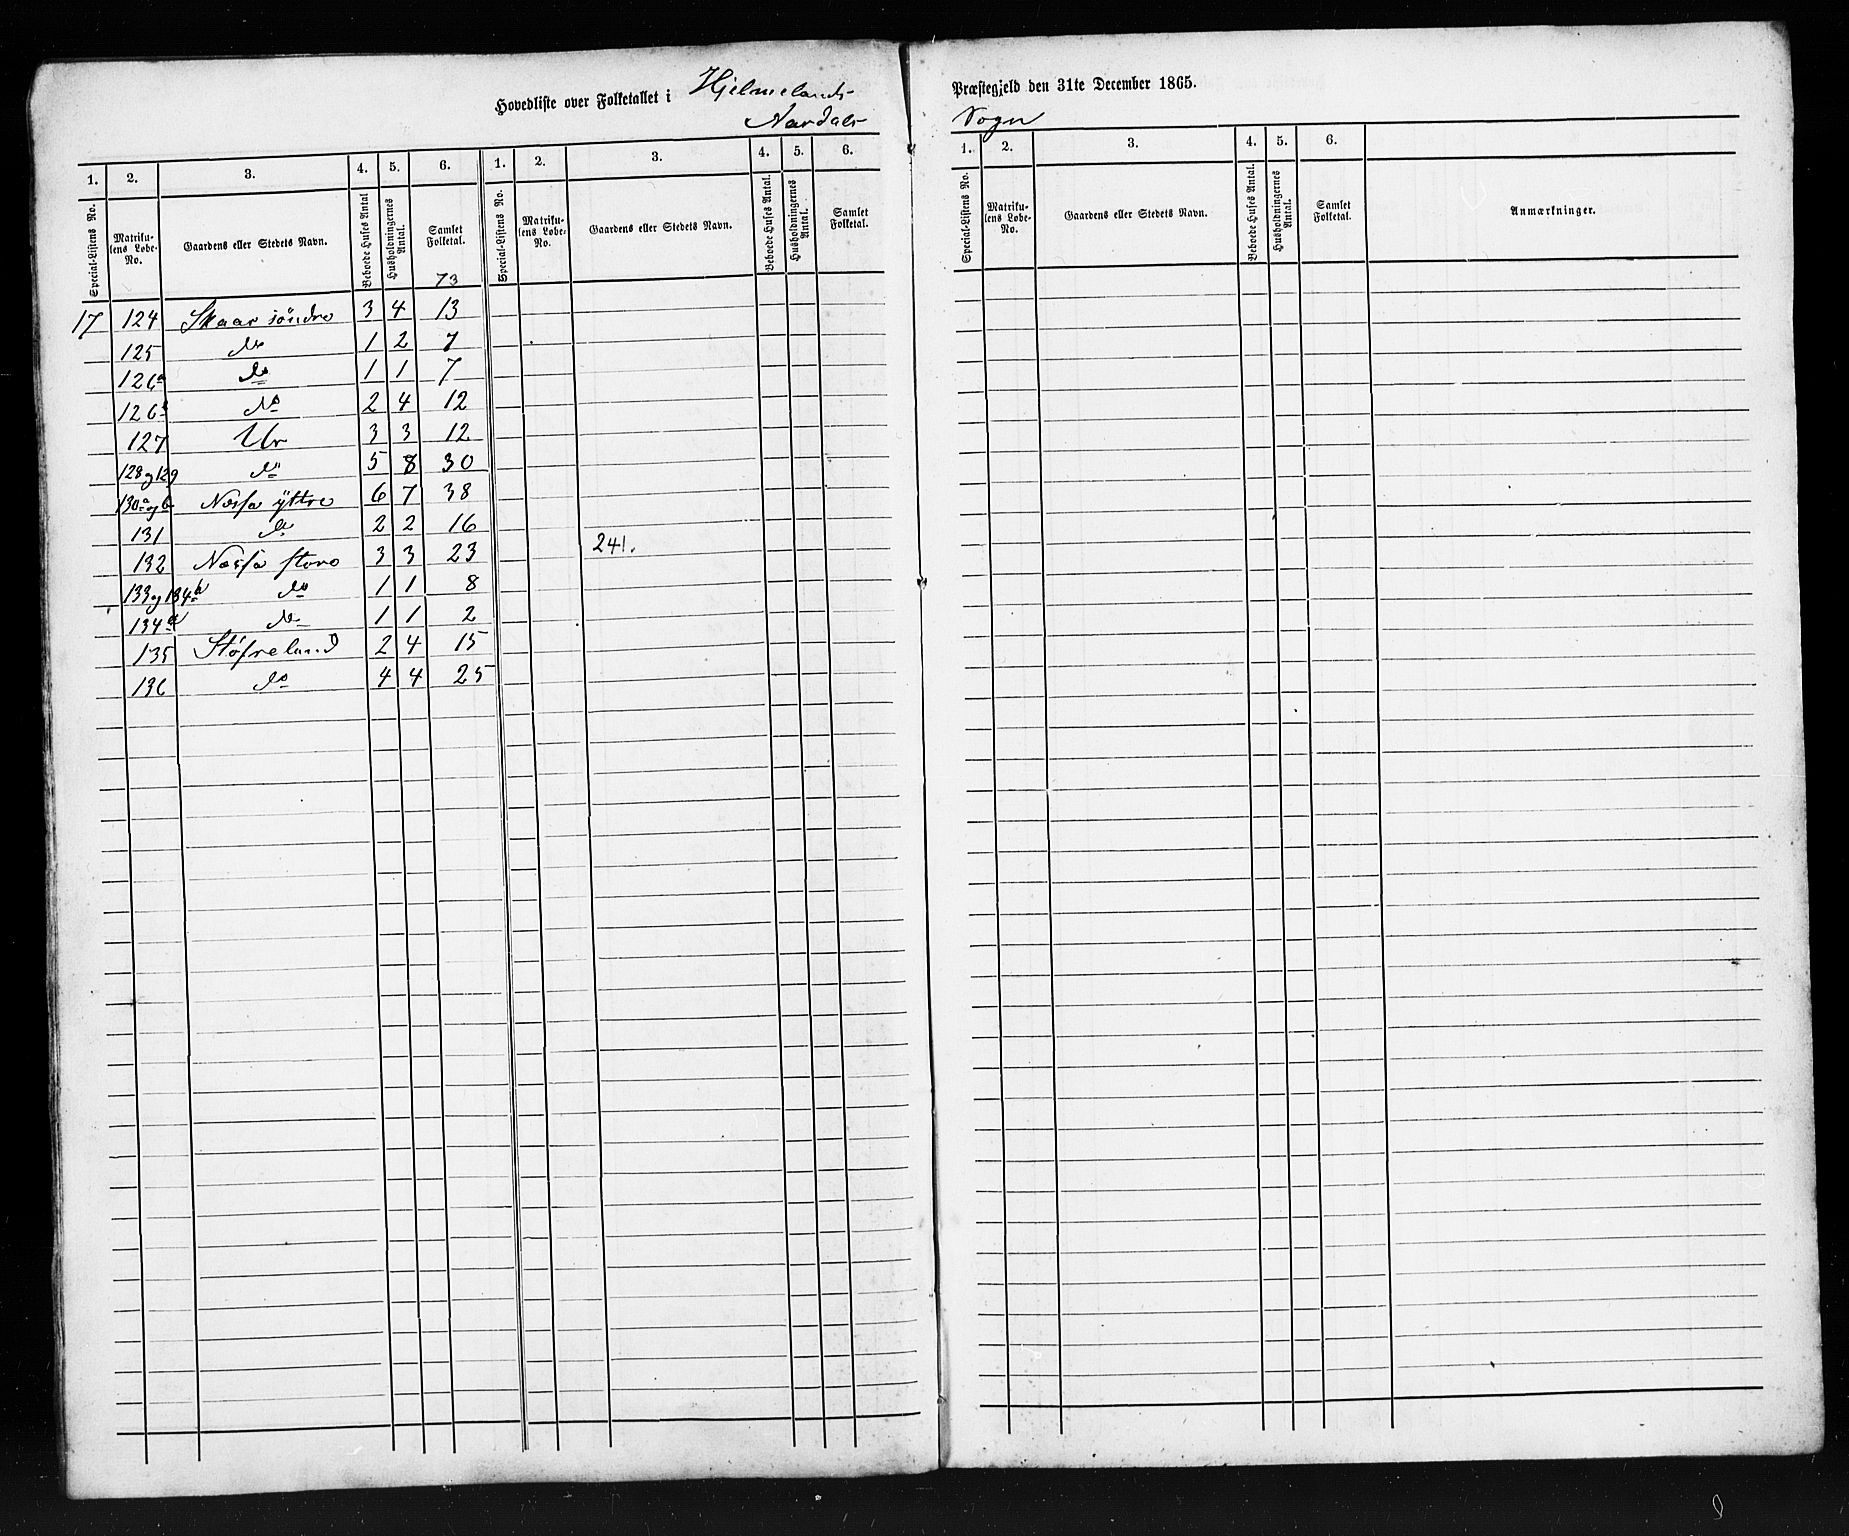 Hovedliste over Folketallet i Hjelmelands Præstegjeld den 31te December 1865.
Aardals Sogn
1. 2. 3. 4. 5. 6. 1. 2. 3. 4. 5. 6.
Special-Listens No. Matrikulens Løbe-No. Gaardens eller Stedets Navn. Beboede Huses Antal Husholdningernes Antal. Samlet Folketal. Special-Listens No. Matrikulens Løbe-No. Gaardens eller Stedets Navn. Beboede Huses Antal. Husholdningernes Antal. Samlet Folketal.
73
17 124 Skaar söndre 3 4 13
125 do 1 2 7
126a do 1 1 7
126b do 2 4 12
127 Ur 3 3 12
128 og 129 do 5 8 30
130a og b Nessa ÿttre 6 7 38
131 do 2 2 16
132 Nessa store 3 3 23
241.
133 og 134b do 1 1 8
134a do 1 1 2
135 Støfreland 2 4 15
136 do 4 4 25
1. 2. 3. 4. 5. 6.
Special-Listens No. Matrikulens Løbe-No. Gaardens eller Stedets Navn. Beboede Huses Antal. Husholdningernes Antal. Samlet Folketal. Anmærkninger.